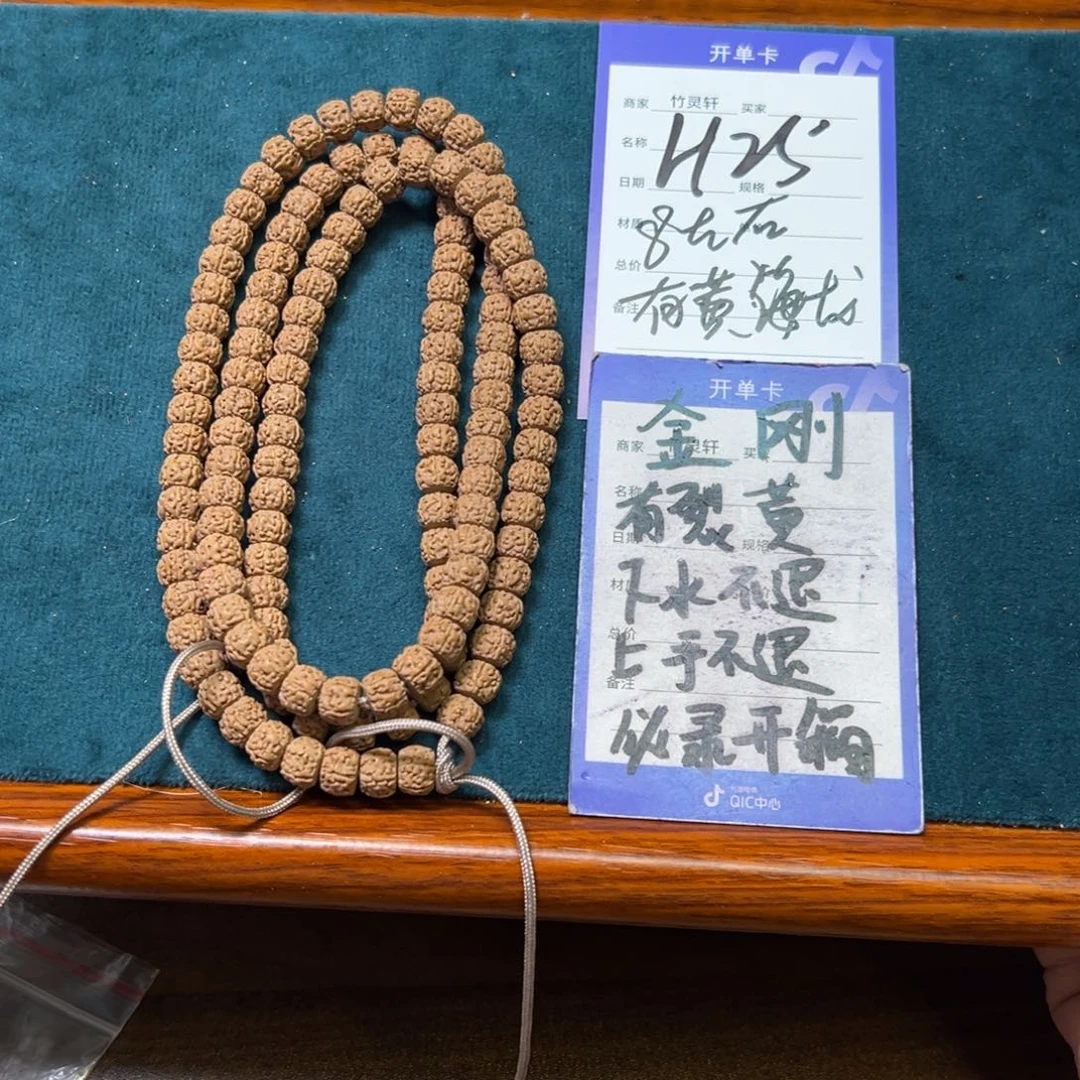 开单卡
商家 竹灵轩 买家
名称
H25
日期 规格
材质 8左右
总价
备注 有黄
开单卡
金刚
商家 灵轩 买
名称
有裂黄
日期 规格
下水不退
总价
上手不退
备注
必录开箱
QIC中心